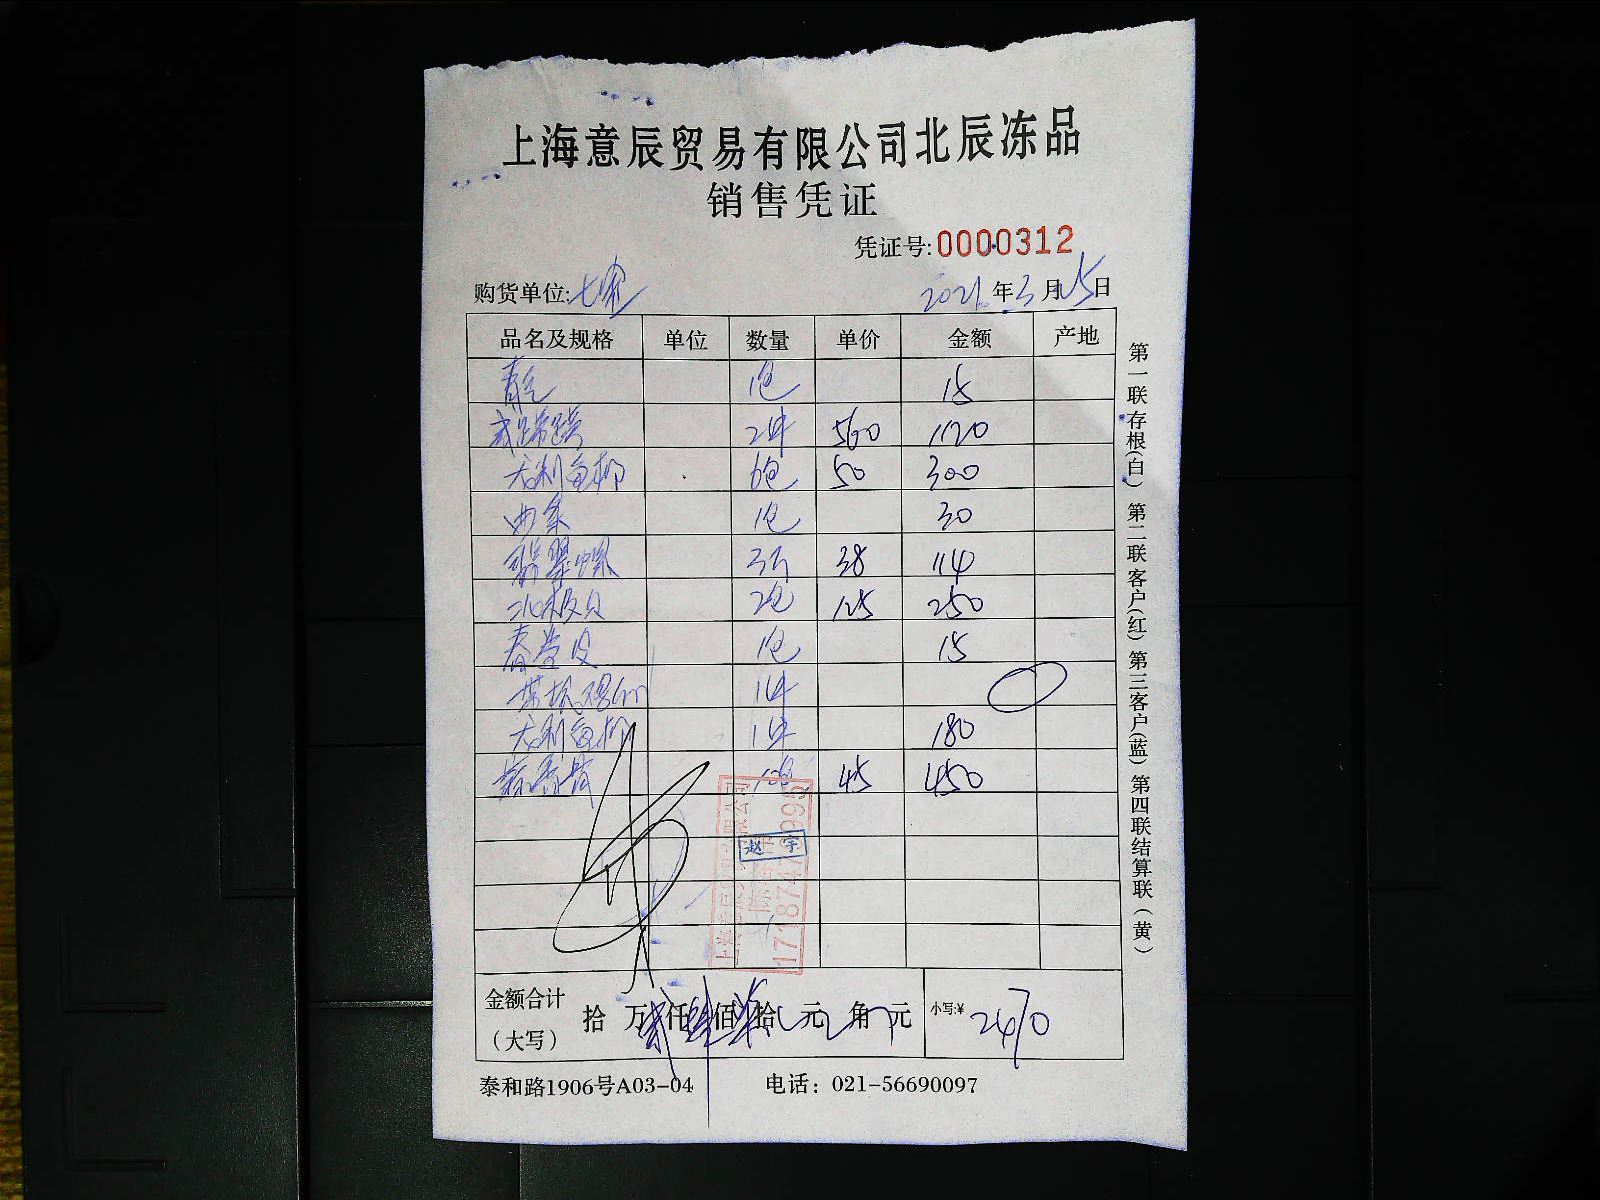 上海意辰贸易有限公司北辰冻品
销售凭证
凭证号:0000312
购货单位:七
2021年3月15日
品名及规格 单位 数量 单价 金额 产地
1包 15
2件 560 1120
龙利鱼柳 6包 50 300
1包 30
翡翠 3斤 38 114
北极贝 2包 125 250
春卷皮 1包 15
1件
龙利鱼柳 1件 180
10包 45 450
赵宇
金额合计
(大写)
拾 万贰仟肆佰柒拾 元 角 元 小写:¥ 2470
泰和路1906号A03-04 电话：021-56690097
第一联存根(白) 第二联客户(红) 第三客户(蓝) 第四联结算联(黄)